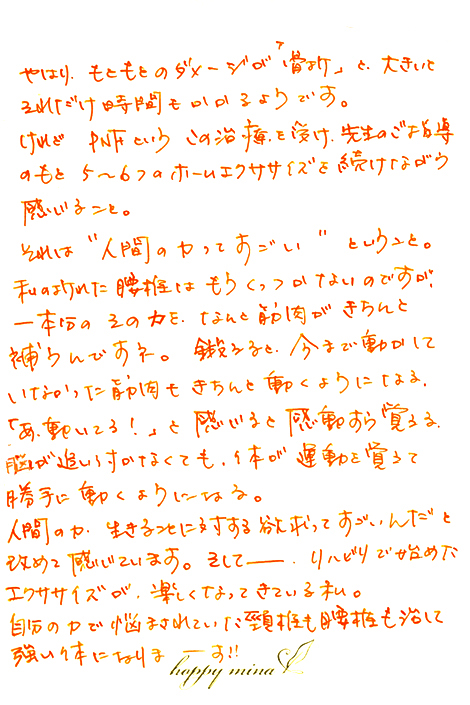 やはり、もともとのダメージが「骨折」と、大きいと
それだけ時間もかかるようです。
けれど PNFという この治療を受け、先生のご指導
のもと 5〜6つのホームエクササイズを続けながら
感じること。
それは "人間の力ってすごい" ということ。
私の折れた腰椎はもうくっつかないのですが、
一本分のその力を、なんと筋肉がきちんと
補うんですネ。鍛えると、今まで動かして
いなかった筋肉もきちんと動くようになる。
「あ、動いてる!」と感じると感動すら覚える。
脳が追い付かなくても、体が運動を覚えて
勝手に動くようになる。
人間の力、生きることに対する欲求ってすごいんだと
改めて感じています。そして――、リハビリで始めた
エクササイズが、楽しくなってきている私。
自分の力で悩まされていた頸椎も腰椎も治して
強い体になりまーす!!
happy mina